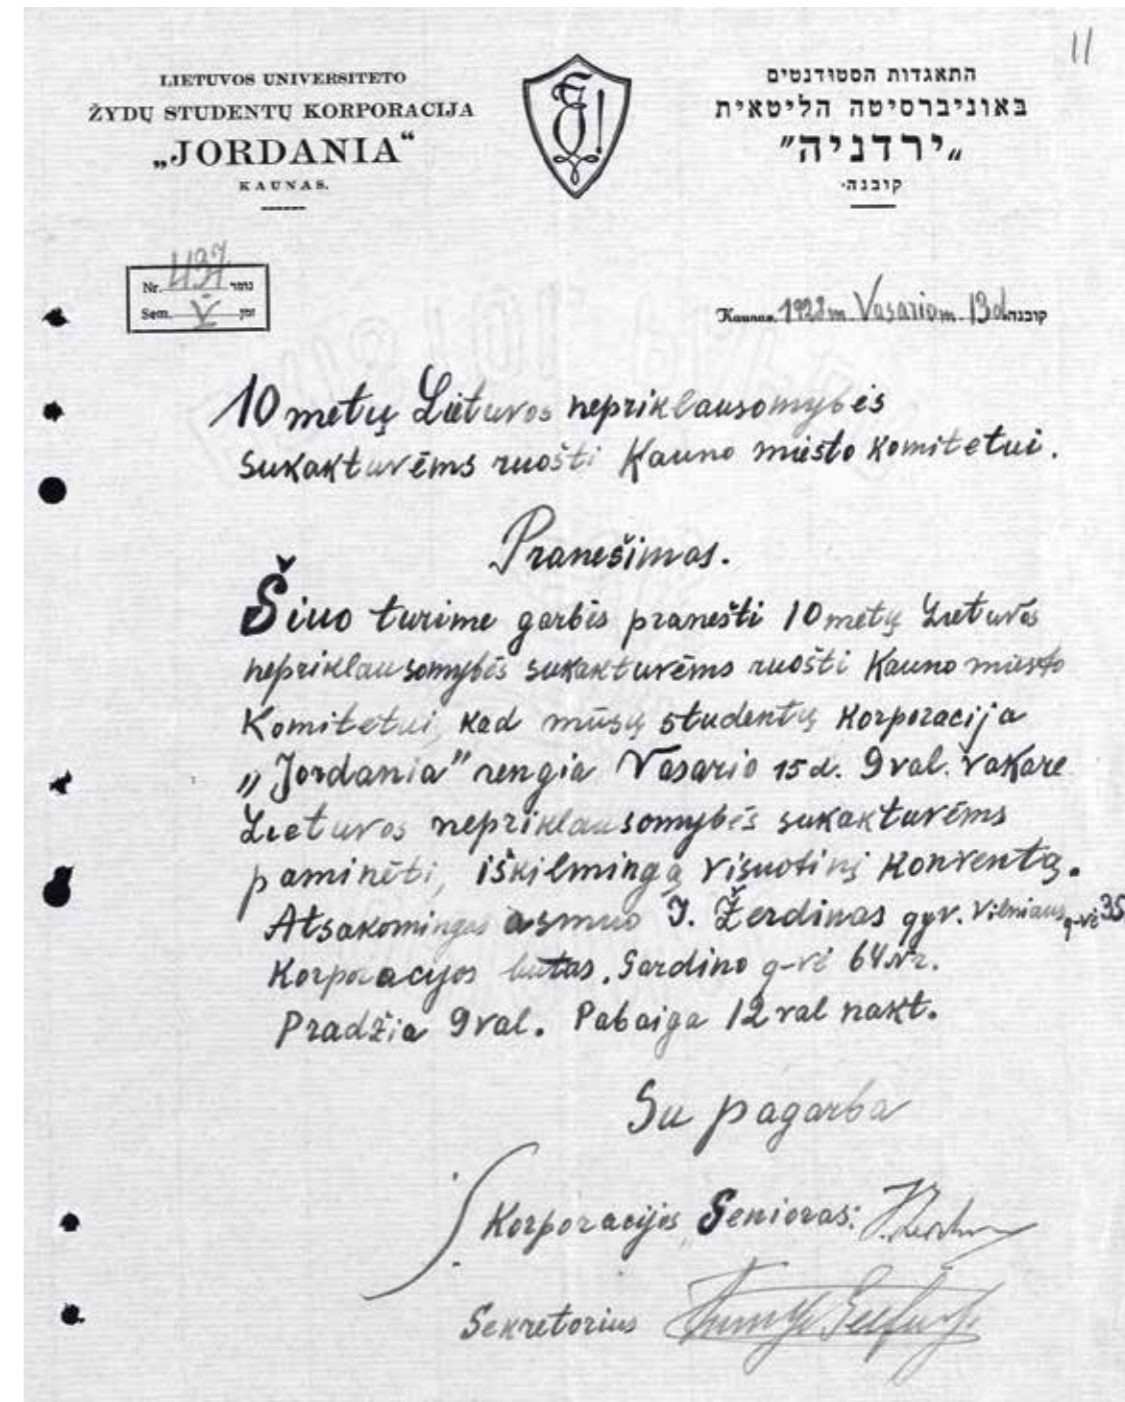 11
LIETUVOS UNIVERSITETO
ŽYDŲ STUDENTŲ KORPORACIJA
„JORDANIA“
KAUNAS.
התאגדות הסטודנטים
באוניברסיטה הליטאית
„ירדניה"
קובנה·
Nr. 437 נומר
Sem. V זמן
Kaunas, 1928 m. Vasario m. 13 d. קובנה
10 metų Lietuvos nepriklausomybės
sukaktuvēms ruošti Kauno miesto komitetui.
Pranešimas.
Šiuo turime garbės pranešti 10 metų Lietuvos
nepriklausomybės sukaktuvēms ruošti Kauno miesto
Komitetui, kad mūsų studentų korporacija
„Jordania" rengia Vasario 15 d. 9 val. vakare
Lietuvos nepriklausomybės sukaktuvēms
paminėti, iškilmingą visuotinį konventą.
Atsakomingas asmuo J. Žerdinas gyv. Vilniaus g-vė 35
Korporacijos butas. Sardino g-vė 64 Nr.
Pradžia 9 val. Pabaiga 12 val nakt.
Su pagarba
Korporacijos Senioras:
Sekretorius